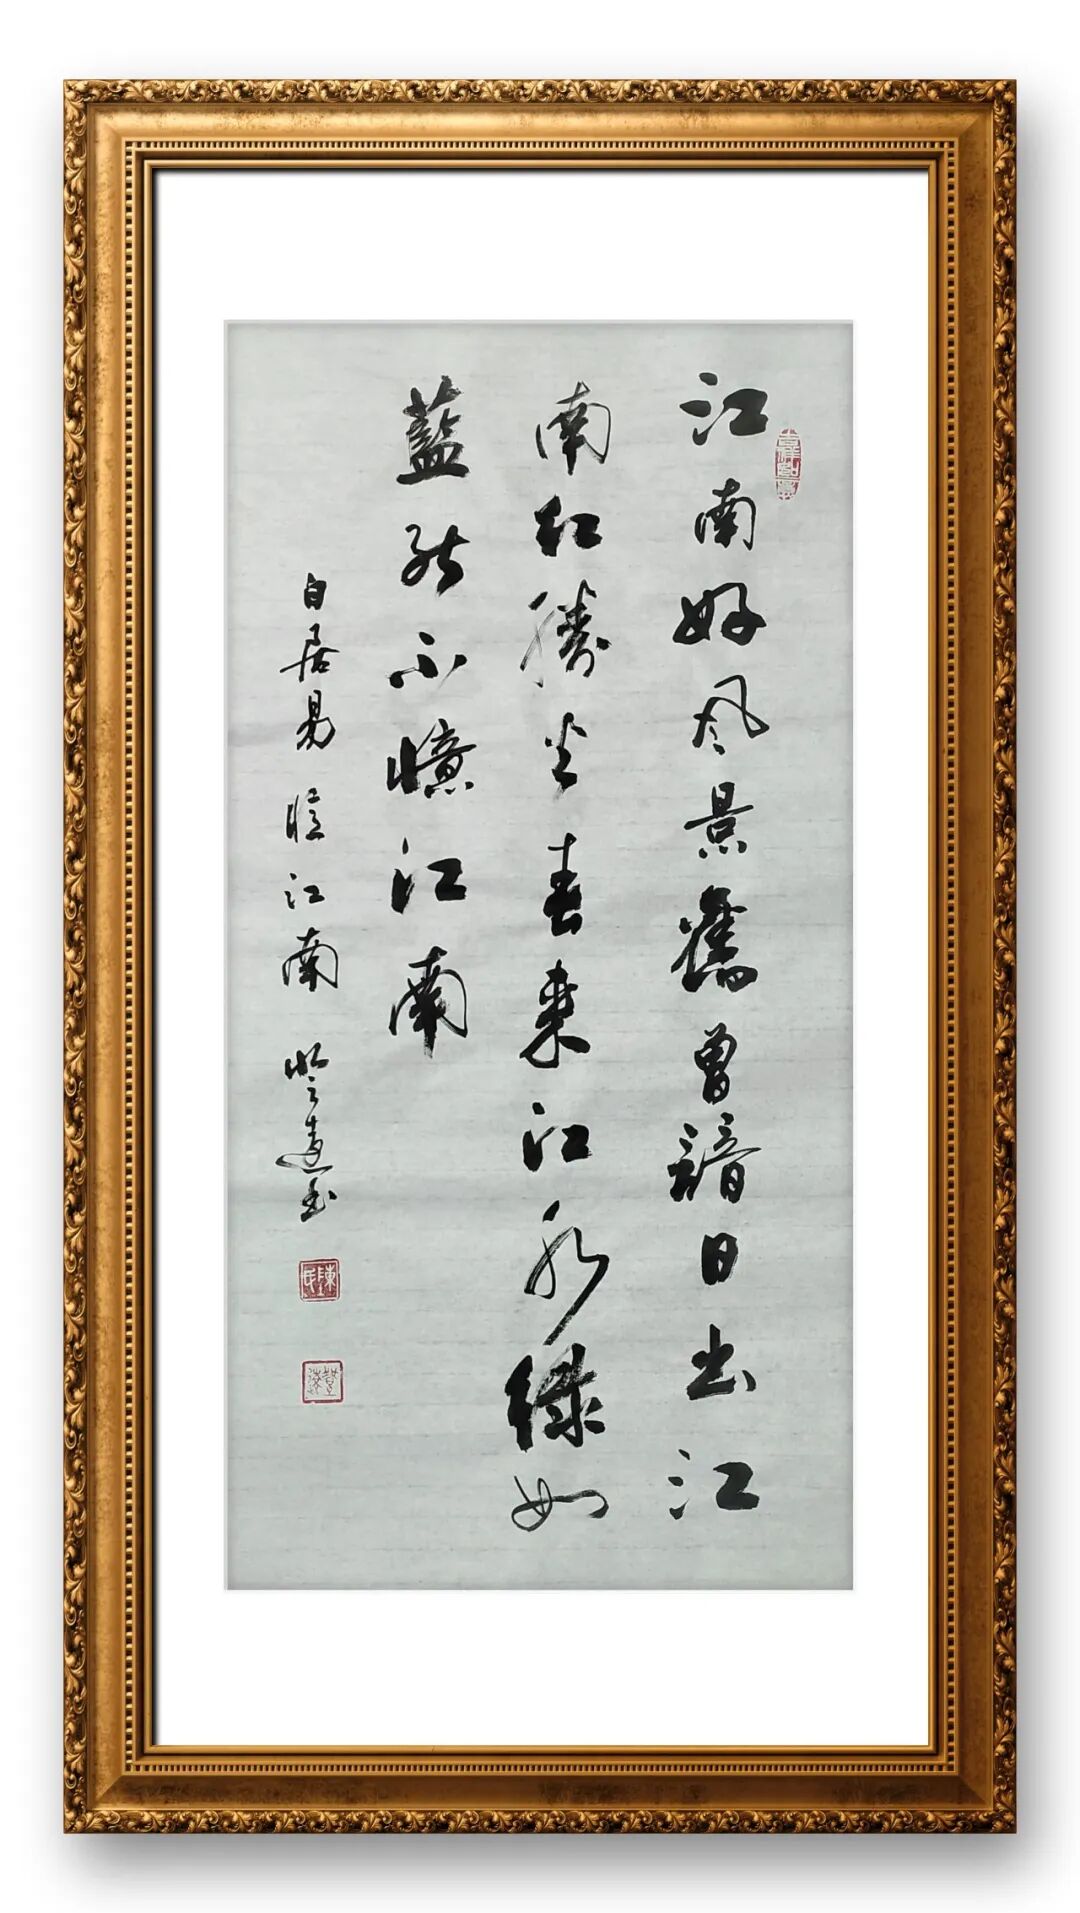 江南好风景舊曾諳日出江
南红勝火春来江水绿如
藍能不憶江南
白居易憶江南 登遠书